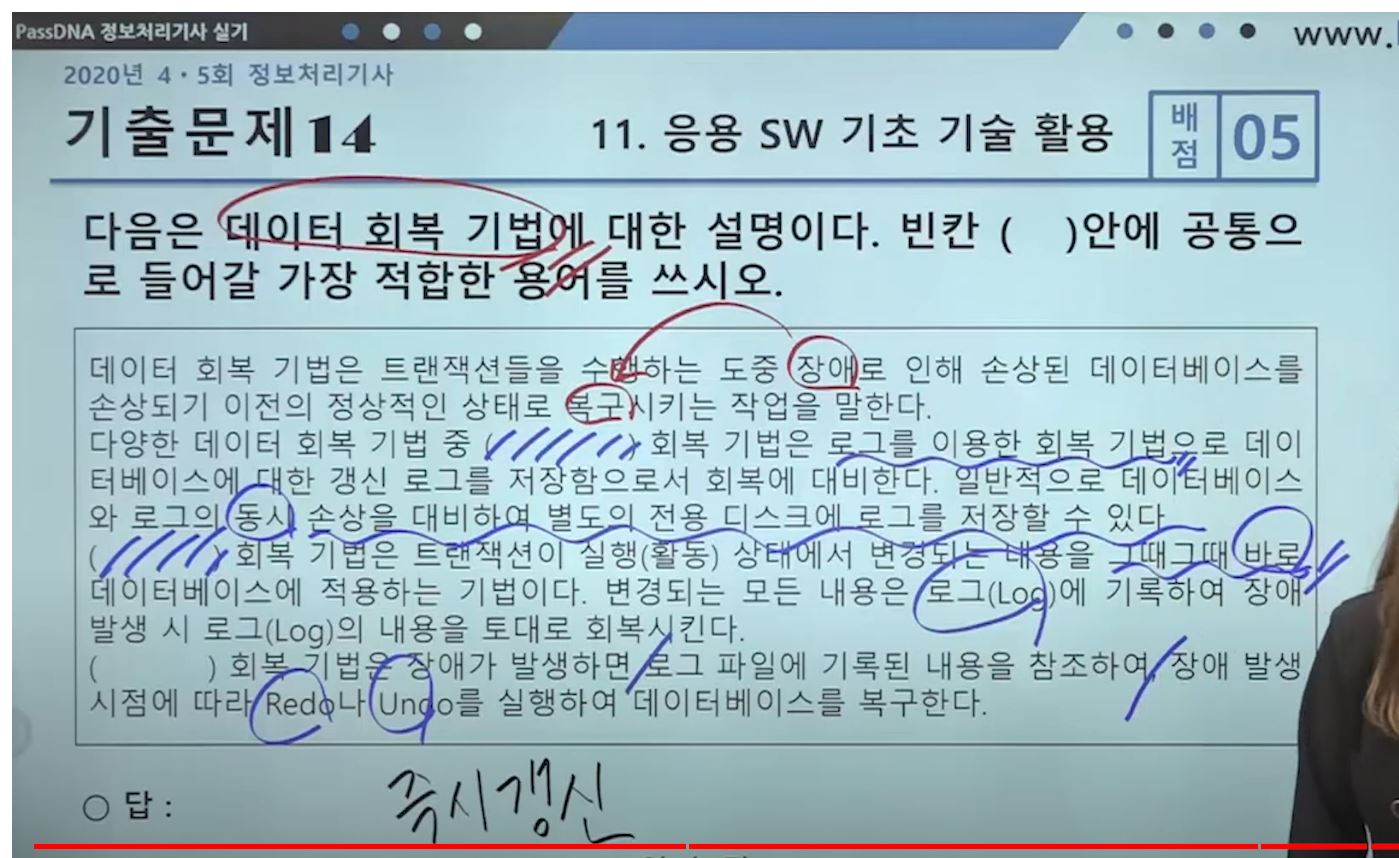 PassDNA 정보처리기사 실기
www.
2020년 4·5회 정보처리기사
기출문제14
11. 응용 SW 기초 기술 활용
배점
05
다음은 데이터 회복 기법에 대한 설명이다. 빈칸 ( )안에 공통으
로 들어갈 가장 적합한 용어를 쓰시오.
데이터 회복 기법은 트랜잭션들을 수행하는 도중 장애로 인해 손상된 데이터베이스를
손상되기 이전의 정상적인 상태로 복구시키는 작업을 말한다.
다양한 데이터 회복 기법 중 ( ) 회복 기법은 로그를 이용한 회복 기법으로 데이
터베이스에 대한 갱신 로그를 저장함으로서 회복에 대비한다. 일반적으로 데이터베이스
와 로그의 동시 손상을 대비하여 별도의 전용 디스크에 로그를 저장할 수 있다
( ) 회복 기법은 트랜잭션이 실행(활동) 상태에서 변경되는 내용을 그때그때 바로
데이터베이스에 적용하는 기법이다. 변경되는 모든 내용은 로그(Log)에 기록하여 장애
발생 시 로그(Log)의 내용을 토대로 회복시킨다.
( ) 회복 기법은 장애가 발생하면 로그 파일에 기록된 내용을 참조하여, 장애 발생
시점에 따라 Redo나 Undo를 실행하여 데이터베이스를 복구한다.
○ 답 :
즉시갱신